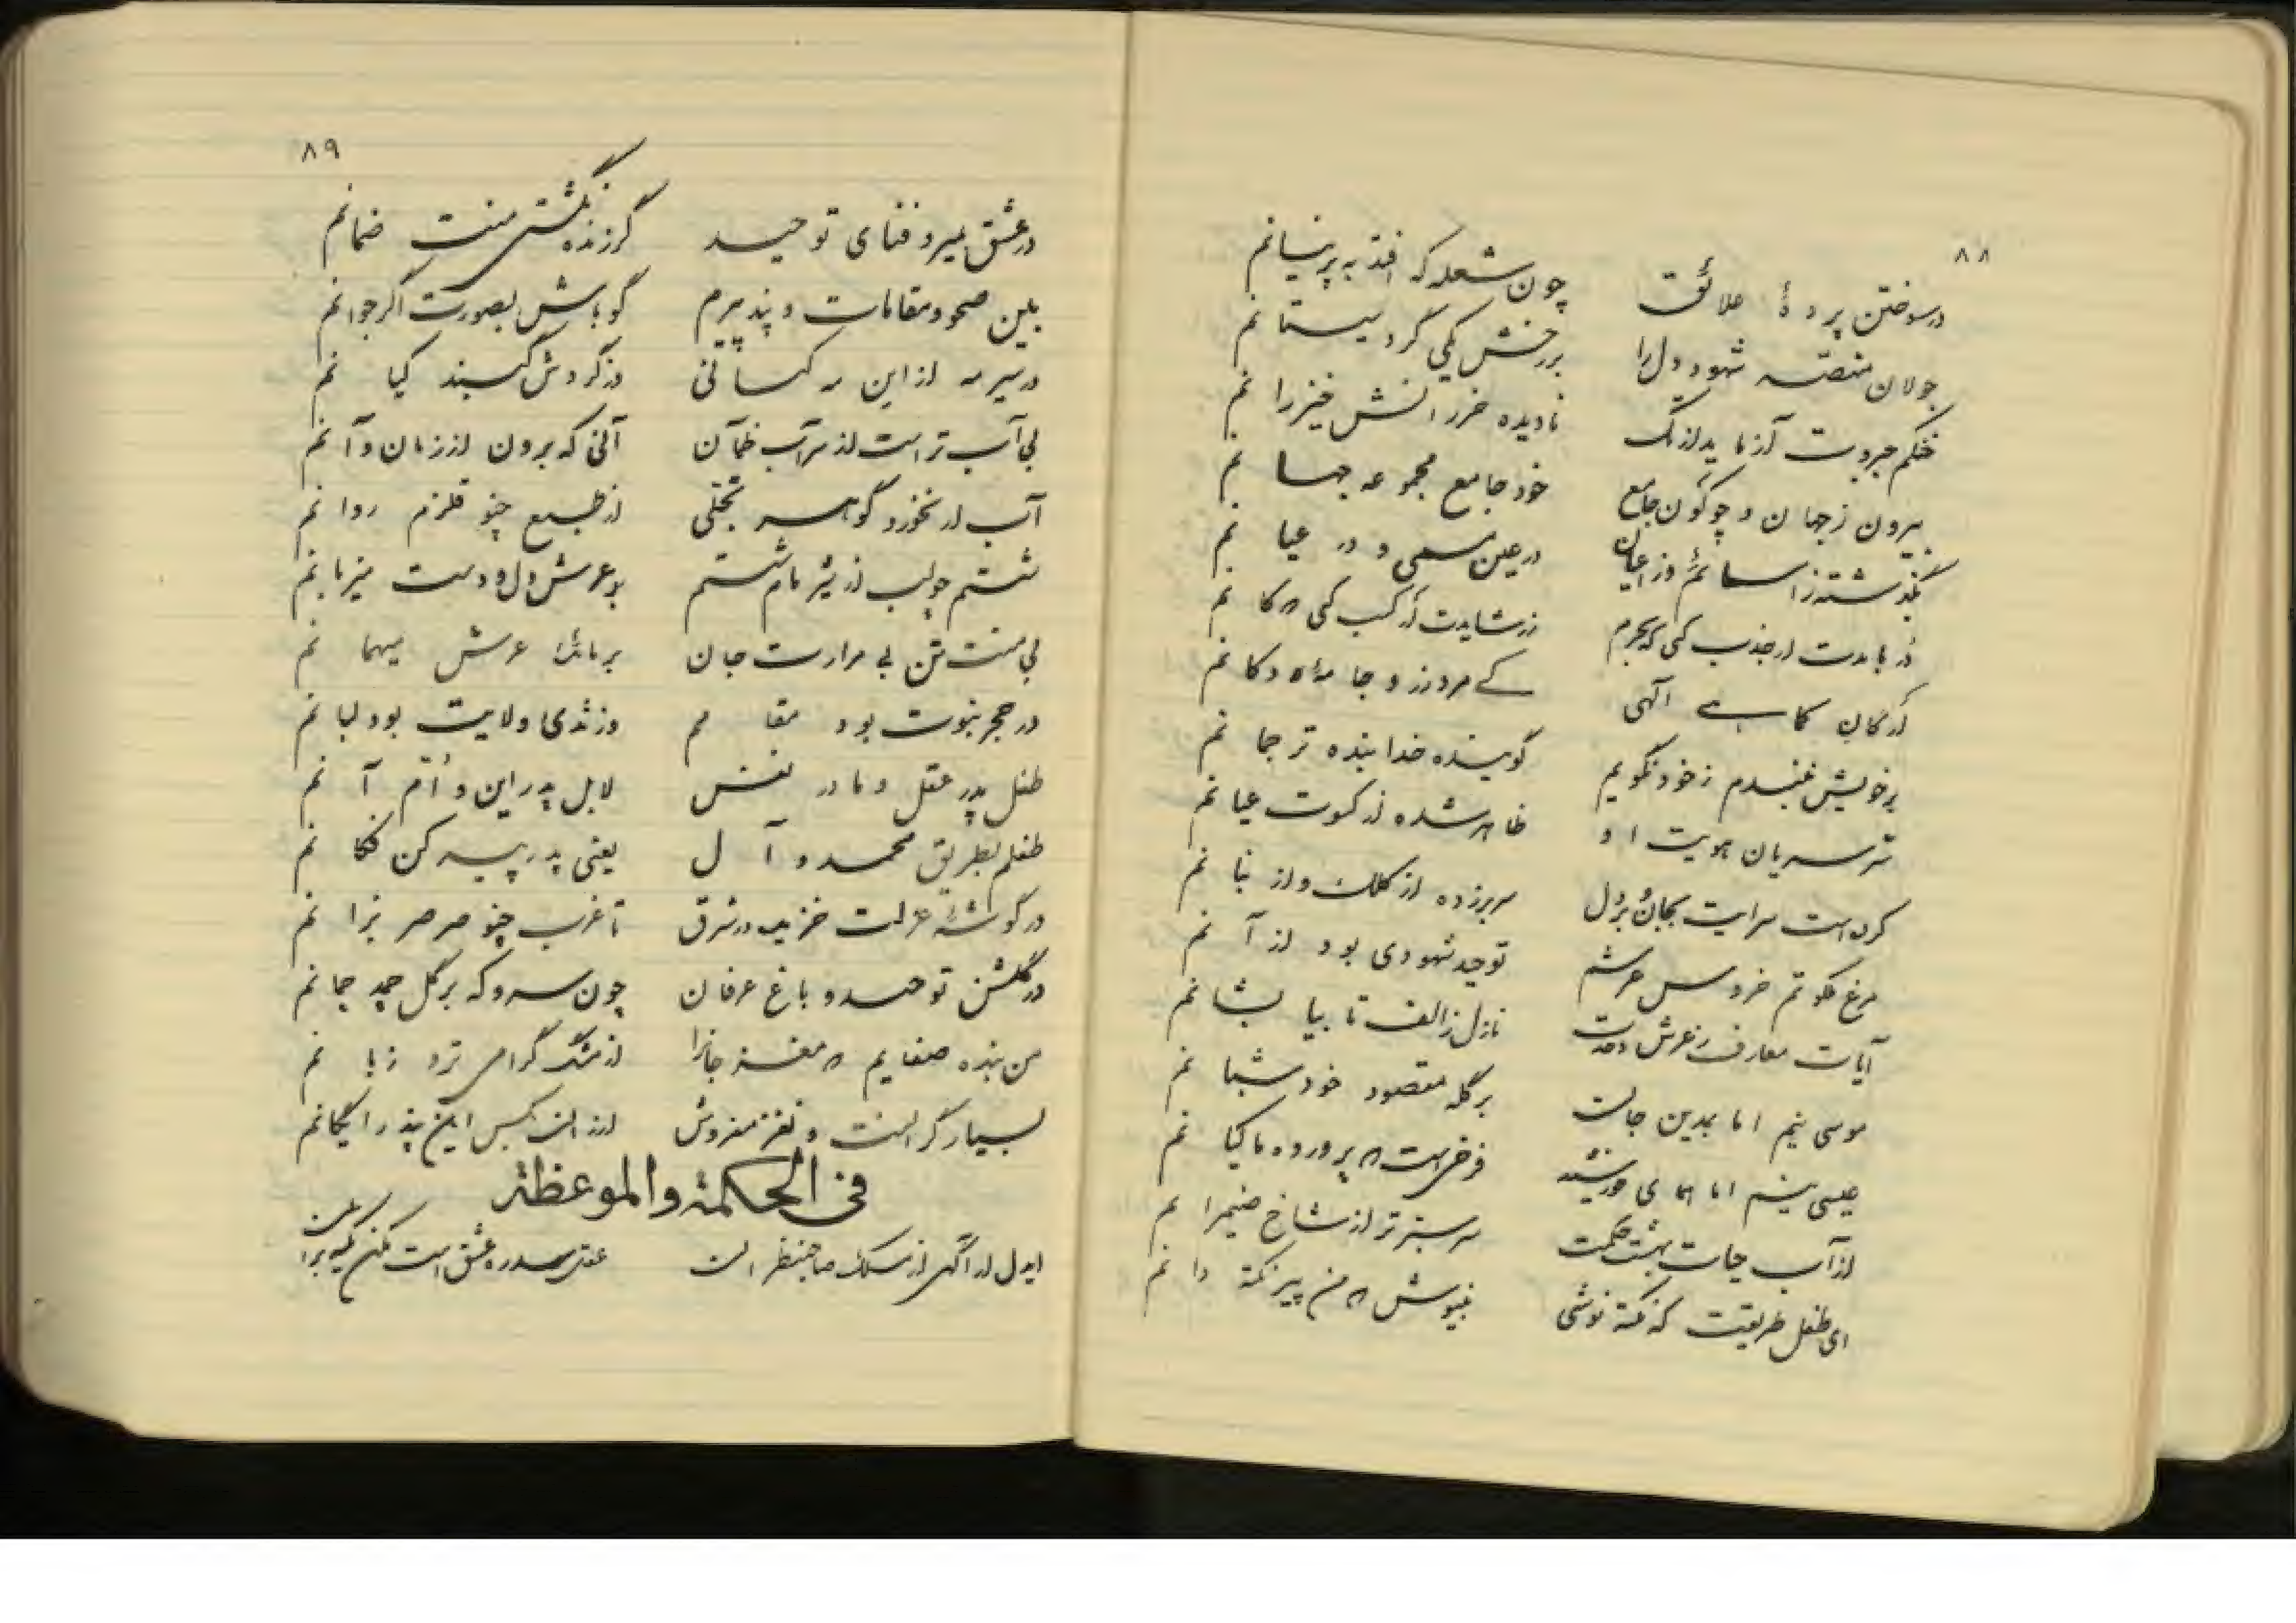 ۸۸
در سوختن پردهٔ علائق چون شعله که افتد به پرنیانم
جولان منصهٔ شهود دل را بر رخش یکی گرد سیستانم
خنگم جبروت آزماید نادیده ضرر از خیزرانم
بیرون ز جهان و چو کون جامع خود جامع مجموعه جهانم
بگذشته ز اسمائم وز اعیان در عین مسمی و در عیانم
بایدت ار جذب کنی که بحرم زر شایدت ار کسب کنی که کانم
الهی کے مرد زر و جاه و دکانم
بر خویش نبندم ز خود نگویم گوینده خدا بنده ترجمانم
سر سریان هویت او ظاهر شده از کسوت عیانم
کرده است سرایت بجان و بر دل سر بر زده از کلک و از بنانم
مرغ ملکوتم خروس عرشم توحید شهودی بود اذانم
آیات معارف ز عرش وحدت نازل ز الف تا بیا بشانم
موسی نیم اما بدین جلالت بر گله مقصود خود شبانم
عیسی نیم اما همای خورشید فرخی است که پرورده ماکیانم
از آب حیات بهشت حکمت سرسبزتر از شاخ ضیمرانم
ای طفل طریقت که نکته نوشی بنیوش که من پیر نکته دانم
۸۹
در عشق بمیر و فنای توحید گر زنده نگشتی منت ضمانم
ببین صحو و مقامات و پند پیرم گو باش بصورت اگر جوانم
در سیر مه از این مه کسانی وز گردش گنبد کیانم
بی آب تر است از سراب ظمآن آنی که برون از زمان و آنم
آب ار نخورد گوهر تجلی از طبع چو قلزم روانم
شستم چو لب از شیر مام شستم بر عرش دل و دست میزبانم
بی منت تن بی مرارت جان بر مائدهٔ عرش میهمانم
در حجر نبوت بود مقامم وز ثدی ولایت بود لبانم
طفل پدر عقل و مادر نفس لا بل پدر این و اُمّ آنم
طفلم بطریق محمد و آل یعنی پدر پیر کن فکانم
در گوشهٔ عزلت خزیده در شرق تا غرب چو صرصر بزانم
در گلشن توحید و باغ عرفان چون سرو که بر گل چمد چمانم
من بنده صفایم که مغز جانرا از مشک گرامی‌تر زبانم
بسیار گرانست و نغز مفروش ارزان بکس این پند رایگانم
فی الحکمة والموعظة
ایدل ار آگهی از مسلک صاحبنظران عقل سد ره عشق است مکن تکیه بر آن